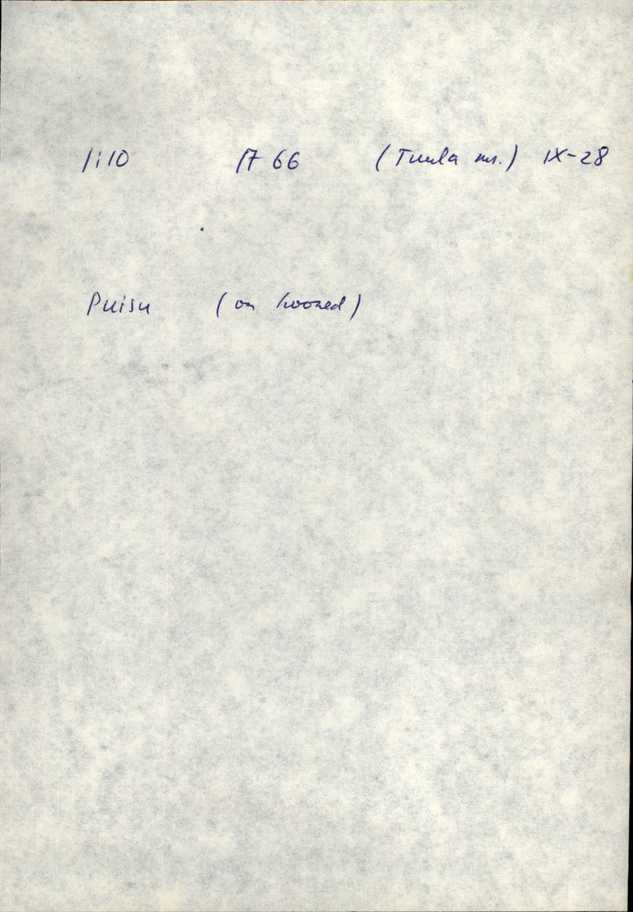 1:10 17 66 (Tuula ms.) IX-28
Puisu (on hooned)